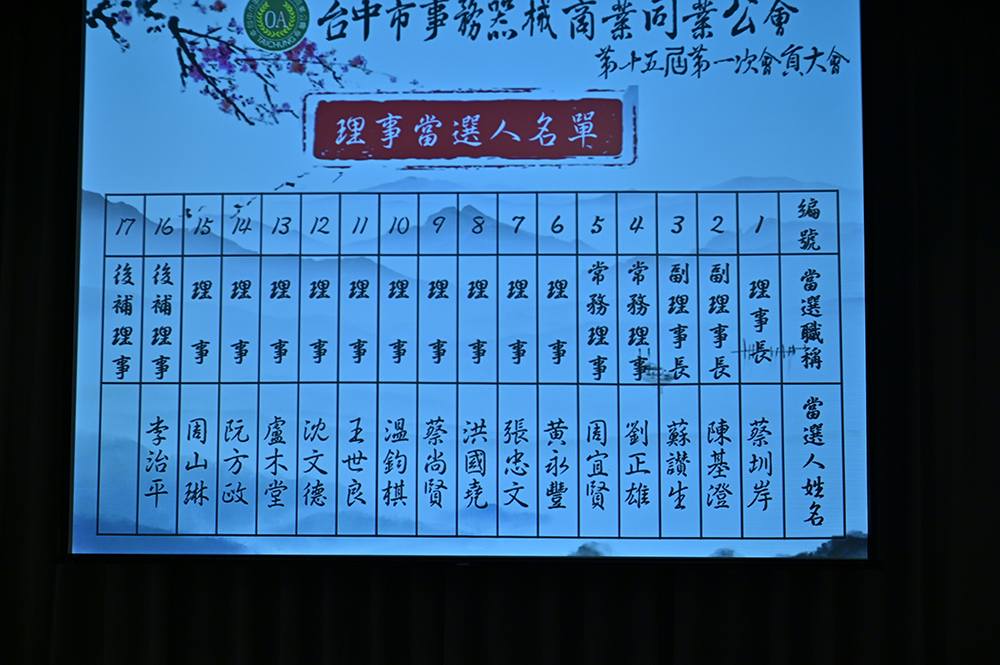 OA
TAICHUNG
台中市事務器械商業同業公會
第十五屆第一次會員大會
理事當選人名單
編號 當選職稱 當選人姓名
1 理事長 蔡圳岸
2 副理事長 陳基澄
3 副理事長 蘇讃生
4 常務理事 劉正雄
5 常務理事 周宜賢
6 理事 黃永豐
7 理事 張忠文
8 理事 洪國堯
9 理事 蔡尚賢
10 理事 溫鈞棋
11 理事 王世良
12 理事 沈文德
13 理事 盧木堂
14 理事 阮方政
15 理事 周山琳
16 後補理事 李治平
17 後補理事